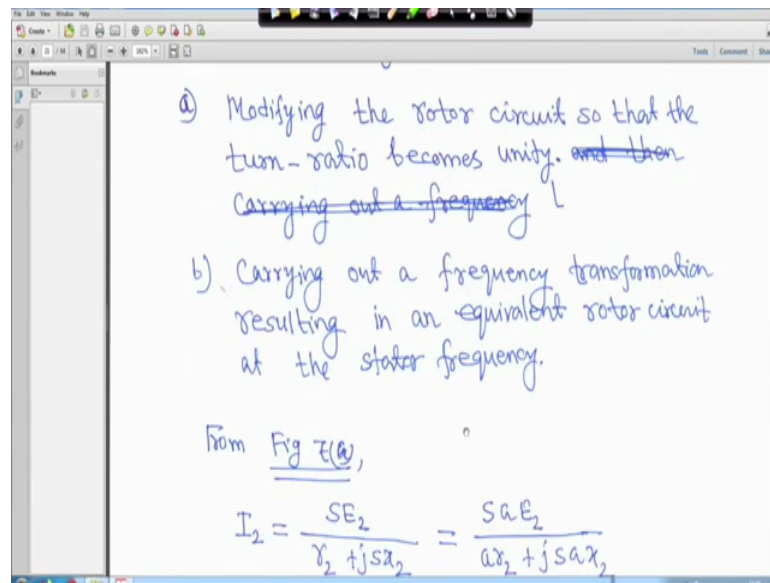 File Edit View Window Help
Create
21 / 84
182%
Tools Comment Sha
Bookmarks
a) Modifying the rotor circuit so that the
turn-ratio becomes unity. and then
Carrying out a frequency
b) Carrying out a frequency transformation
resulting in an equivalent rotor circuit
at the stator frequency.
From Fig 7(a),
I₂ = SE₂ / (r₂ + jsx₂) = SaE₂ / (ar₂ + jsax₂)